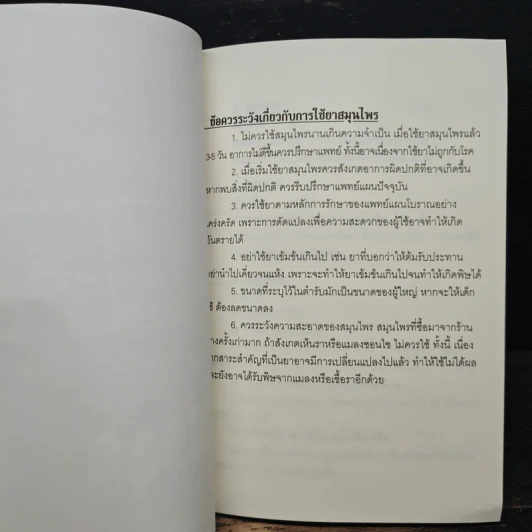 ข้อควรระวังเกี่ยวกับการใช้ยาสมุนไพร
1. ไม่ควรใช้สมุนไพรนานเกินความจำเป็น เมื่อใช้ยาสมุนไพรแล้ว
3-5 วัน อาการไม่ดีขึ้นควรปรึกษาแพทย์ ทั้งนี้อาจเนื่องจากใช้ยาไม่ถูกกับโรค
2. เมื่อเริ่มใช้ยาสมุนไพรควรสังเกตอาการผิดปกติที่อาจเกิดขึ้น
หากพบสิ่งที่ผิดปกติ ควรรีบปรึกษาแพทย์แผนปัจจุบัน
3. ควรใช้ยาตามหลักการรักษาของแพทย์แผนโบราณอย่าง
คร่งครัด เพราะการดัดแปลงเพื่อความสะดวกของผู้ใช้อาจทำให้เกิด
อันตรายได้
4. อย่าใช้ยาเข้มข้นเกินไป เช่น ยาที่บอกว่าให้ต้มรับประทาน
อย่านำไปเคี่ยวจนแห้ง เพราะจะทำให้ยาเข้มข้นเกินไปจนทำให้เกิดพิษได้
5. ขนาดที่ระบุไว้ในตำรับมักเป็นขนาดของผู้ใหญ่ หากจะให้เด็ก
ช้ ต้องลดขนาดลง
6. ควรระวังความสะอาดของสมุนไพร สมุนไพรที่ซื้อมาจากร้าน
างครั้งเก่ามาก ถ้าสังเกตเห็นราหรือแมลงชอนไช ไม่ควรใช้ ทั้งนี้ เนื่อง
ากสาระสำคัญที่เป็นยาอาจมีการเปลี่ยนแปลงไปแล้ว ทำให้ใช้ไม่ได้ผล
จะยังอาจได้รับพิษจากแมลงหรือเชื้อราอีกด้วย